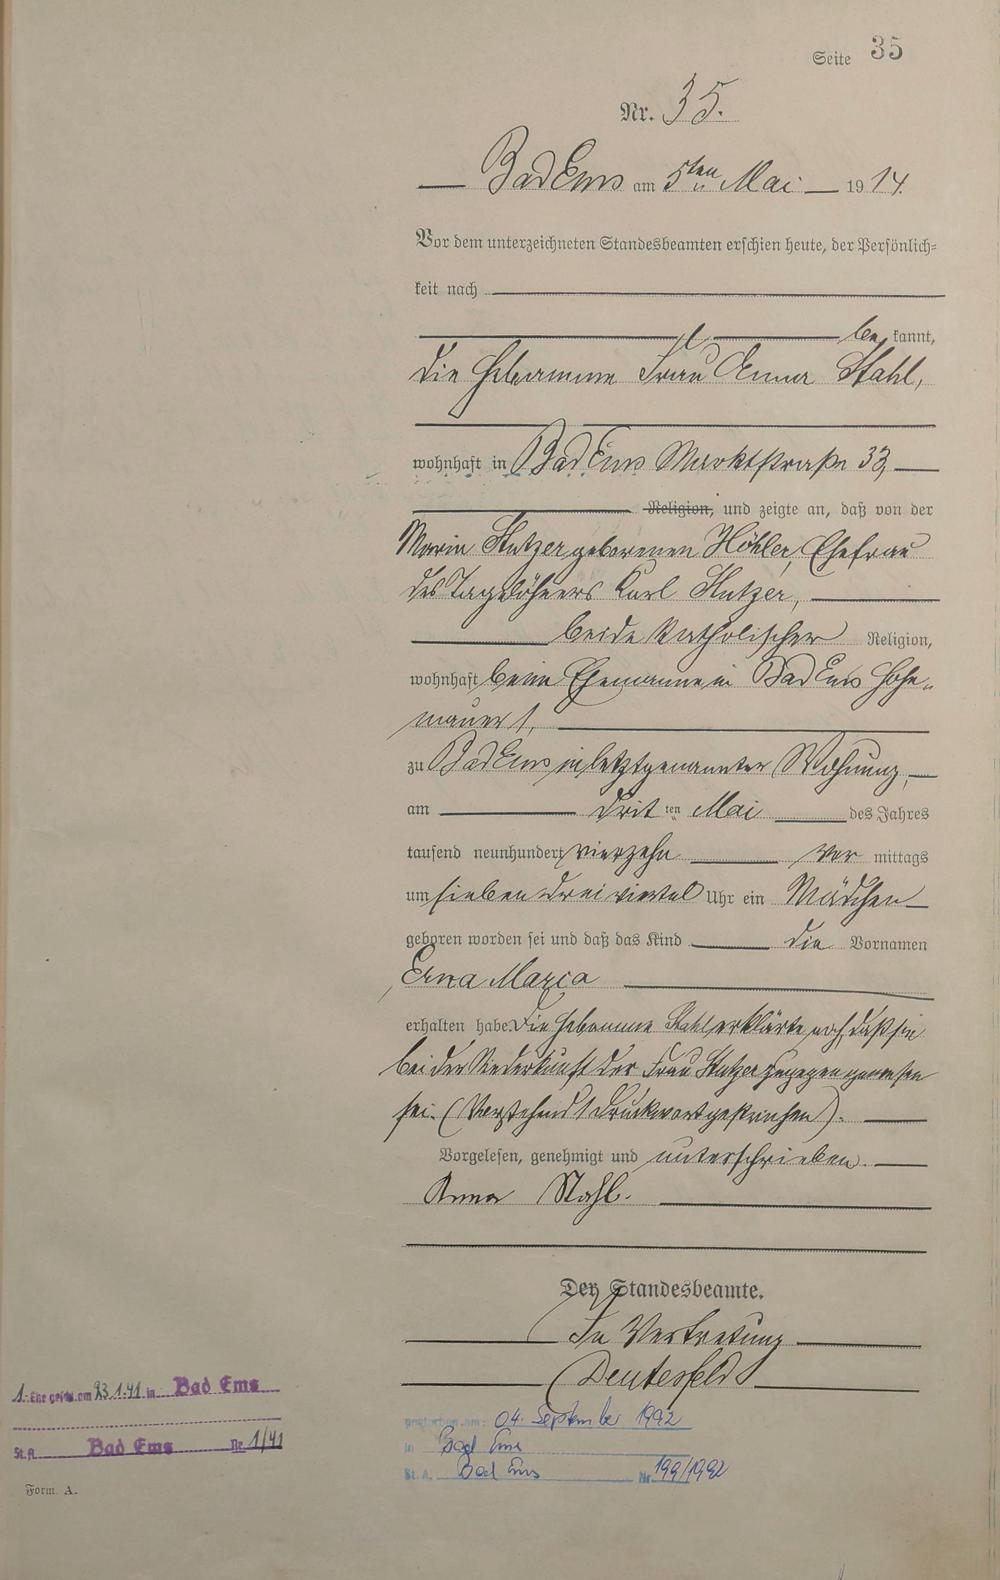 Seite 35
Nr. 35.
Bad Ems am 5ten Mai 1914.
Vor dem unterzeichneten Standesbeamten erschien heute, der Persönlich-
keit nach
be kannt,
die Hebamme Frau Anna Stahl,
wohnhaft in Bad Ems Marktstraße 33,
Religion, und zeigte an, daß von der
Maria Stutzer geborenen Höhler, Ehefrau
des Tagelöhners Karl Stutzer,
beide katholischer Religion,
wohnhaft beim Ehemanne in Bad Ems Hohe-
mauer 1,
zu Bad Ems in letztgenannter Wohnung,
am drit ten Mai des Jahres
tausend neunhundert vierzehn vor mittags
um sieben dreiviertel Uhr ein Mädchen
geboren worden sei und daß das Kind die Vornamen
Erna Maria
erhalten habe. Die Hebamme Stahl erklärte noch, daß sie
bei der Niederkunft der Frau Stutzer zugegen gewesen
sei. (Vorstehend 1 Druckwort gestrichen).
Vorgelesen, genehmigt und unterschrieben.
Anna Stahl.
Der Standesbeamte.
In Vertretung
1. Ehe geschl. am 23.1.41 in Bad Ems
St.A. Bad Ems Nr. 1/41
gestorben am: 04. September 1992
in Bad Ems
St. A. Bad Ems Nr. 199/1992
Form. A.